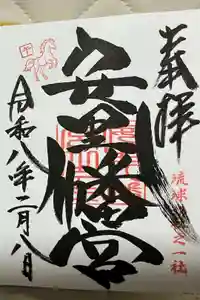 奉拝
琉球八社之一社
安里八幡宮
午
令和八年二月八日